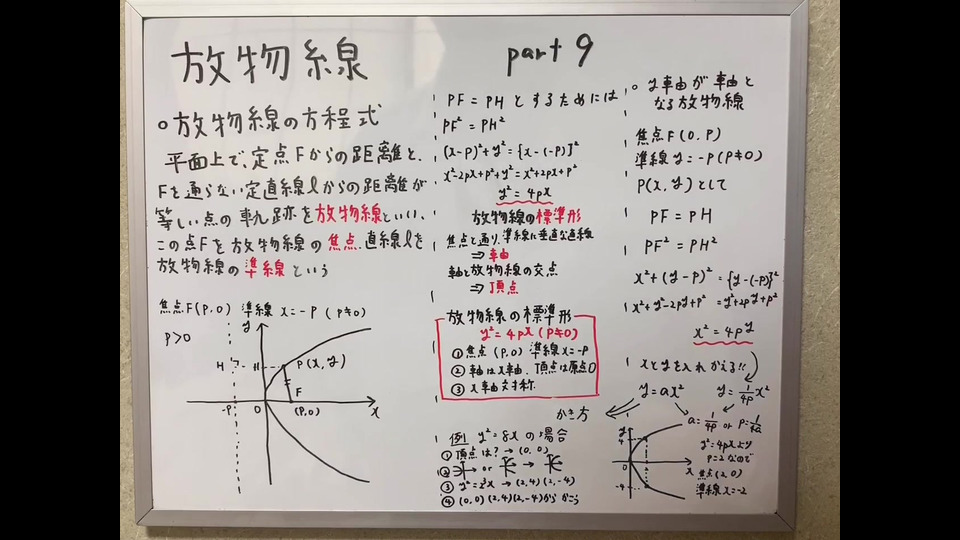 放物線
part 9
○放物線の方程式
平面上で、定点Fからの距離と、
Fを通らない定直線lからの距離が
等しい点の軌跡を放物線といい、
この点Fを放物線の焦点、直線lを
放物線の準線という
焦点F(P,0) 準線 x=-P (P≠0)
P>0
y
H
P(x,y)
F
-P
O
(P,0)
x
PF = PH とするためには
PF² = PH²
(x-P)²+y²={x-(-P)}²
x²-2Px+P²+y²=x²+2Px+P²
y²=4Px
放物線の標準形
焦点と通り、準線に垂直な直線
⇒軸
軸と放物線の交点
⇒頂点
放物線の標準形
y²=4Px (P≠0)
① 焦点 (P,0) 準線 x=-P
② 軸はx軸、頂点は原点O
③ x軸対称
かき方
例 y²=8x の場合
① 頂点は?→(0,0)
② or →
③ → (2,4)(2,-4)
④ (0,0)(2,4)(2,-4)から かこう
○ y軸が軸と
なる放物線
焦点F(0,P)
準線 y=-P(P≠0)
P(x,y)として
PF = PH
PF² = PH²
x²+(y-P)²={y-(-P)}²
x²+y²-2Py+P²=y²+2Py+P²
x²=4Py
xとyを入れかえる!!
y=ax² y=1/4P x²
a=1/4P or P=1/4a
y
4
O
x
-4
y²=4Pxより
P=2なので
焦点(2,0)
準線 x=-2